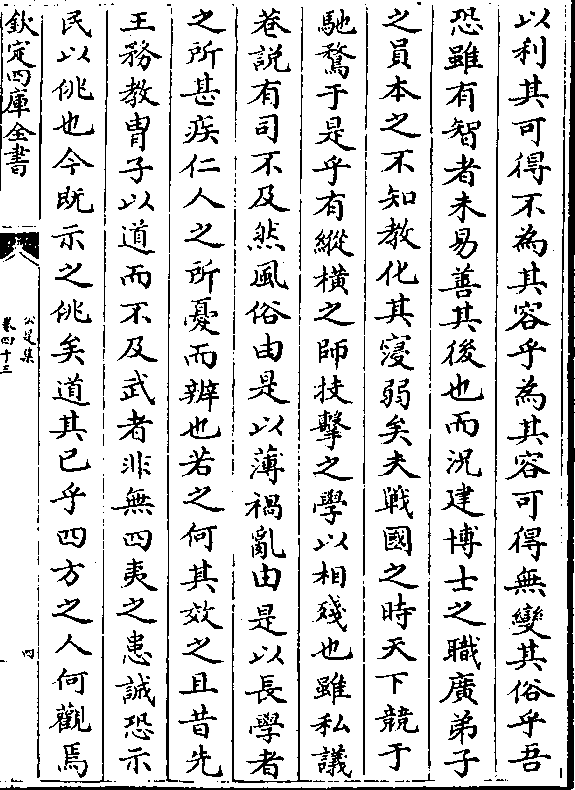 以利其可得不為其容乎為其容可得無變其俗乎吾
恐雖有智者未易善其後也而況建博士之職廣弟子
之員本之不知教化其寖弱矣夫戰國之時天下競于
馳騖于是乎有縱橫之師技擊之學以相殘也雖私議
巷說有司不及然風俗由是以薄禍亂由是以長學者
之所甚疾仁人之所憂而辨也若之何其效之且昔先
王務教胄子以道而不及武者非無四夷之患誠恐示
民以佻也今既示之佻矣道其已乎四方之人何觀焉
欽定四庫全書
公是集
卷四十三
四